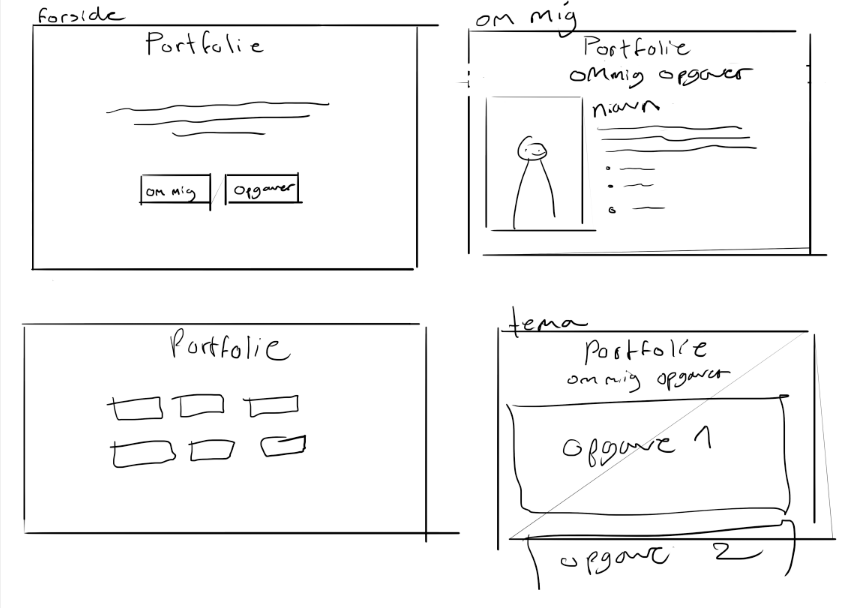 forside
Portfolie
om mig
opgaver
om mig
Portfolie
om mig opgaver
navn
Portfolie
tema
Portfolie
om mig opgaver
opgave 1
opgave 2